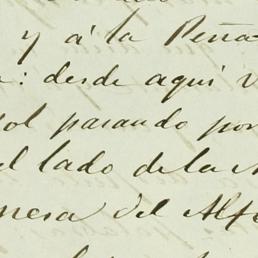 y á la Peña
: desde aquí v
sol pasando por
el lado de la
nera del Alfe